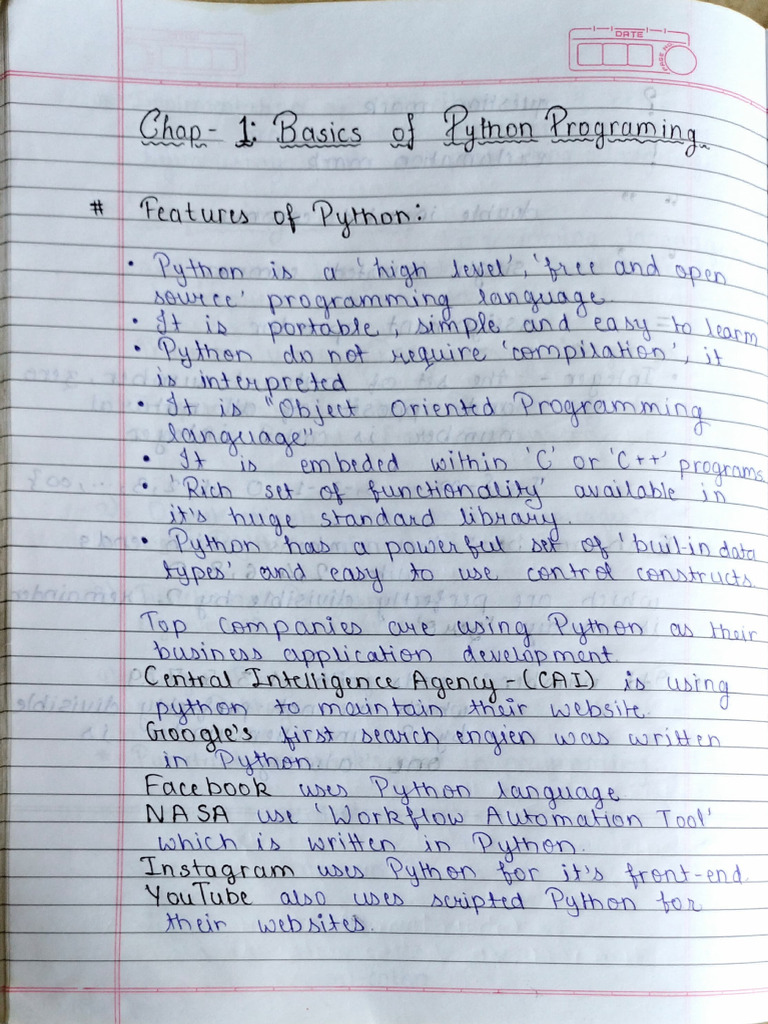 DATE
PAGE NO.
Chap- 1: Basics of Python Programing
# Features of Python:
• Python is a 'high level', 'free and open
source' programming language.
• It is portable, simple and easy to learn
• Python do not require 'compilation', it
is interpreted
• It is "Object Oriented Programming
language"
• It is embeded within 'C' or 'C++' programs
• 'Rich set of functionality' available in
it's huge standard library.
• Python has a powerful set of 'built-in data
types' and easy to use control constructs.
Top companies are using Python as their
business application development.
Central Intelligence Agency - (CAI) is using
python to maintain their website.
Google's first search engien was written
in Python.
Facebook uses Python language
NASA use 'Workflow Automation Tool'
which is written in Python.
Instagram uses Python for it's front-end.
YouTube also uses scripted Python for
their websites.